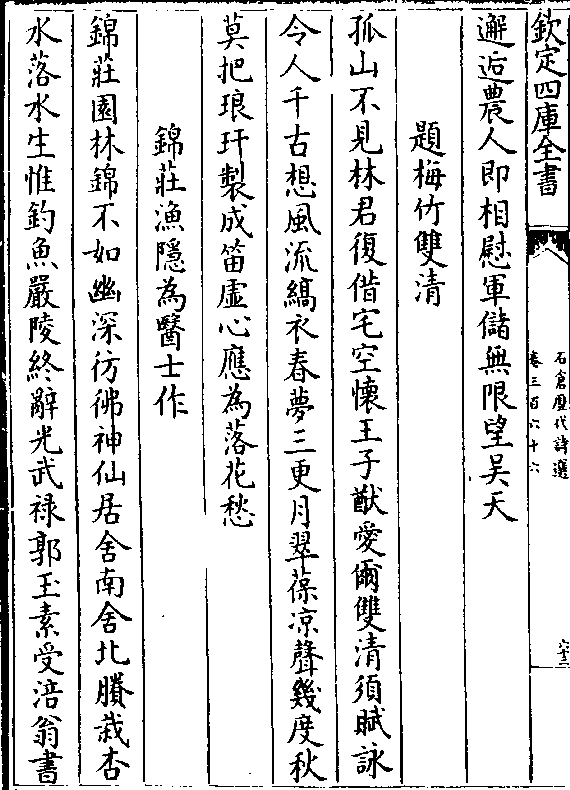 欽定四庫全書
石倉歷代詩選
卷三百六十六
邂逅農人即相慰軍儲無限望吴天
題梅竹雙清
孤山不見林君復借宅空懷王子猷愛爾雙清須賦詠
令人千古想風流縞衣春夢三更月翠葆凉聲幾度秋
莫把琅玕製成笛虛心應為落花愁
錦莊漁隱為醫士作
錦莊園林錦不如幽深彷彿神仙居舍南舍北賸栽杏
水落水生惟釣魚嚴陵終辭光武禄郭玉素受涪翁書